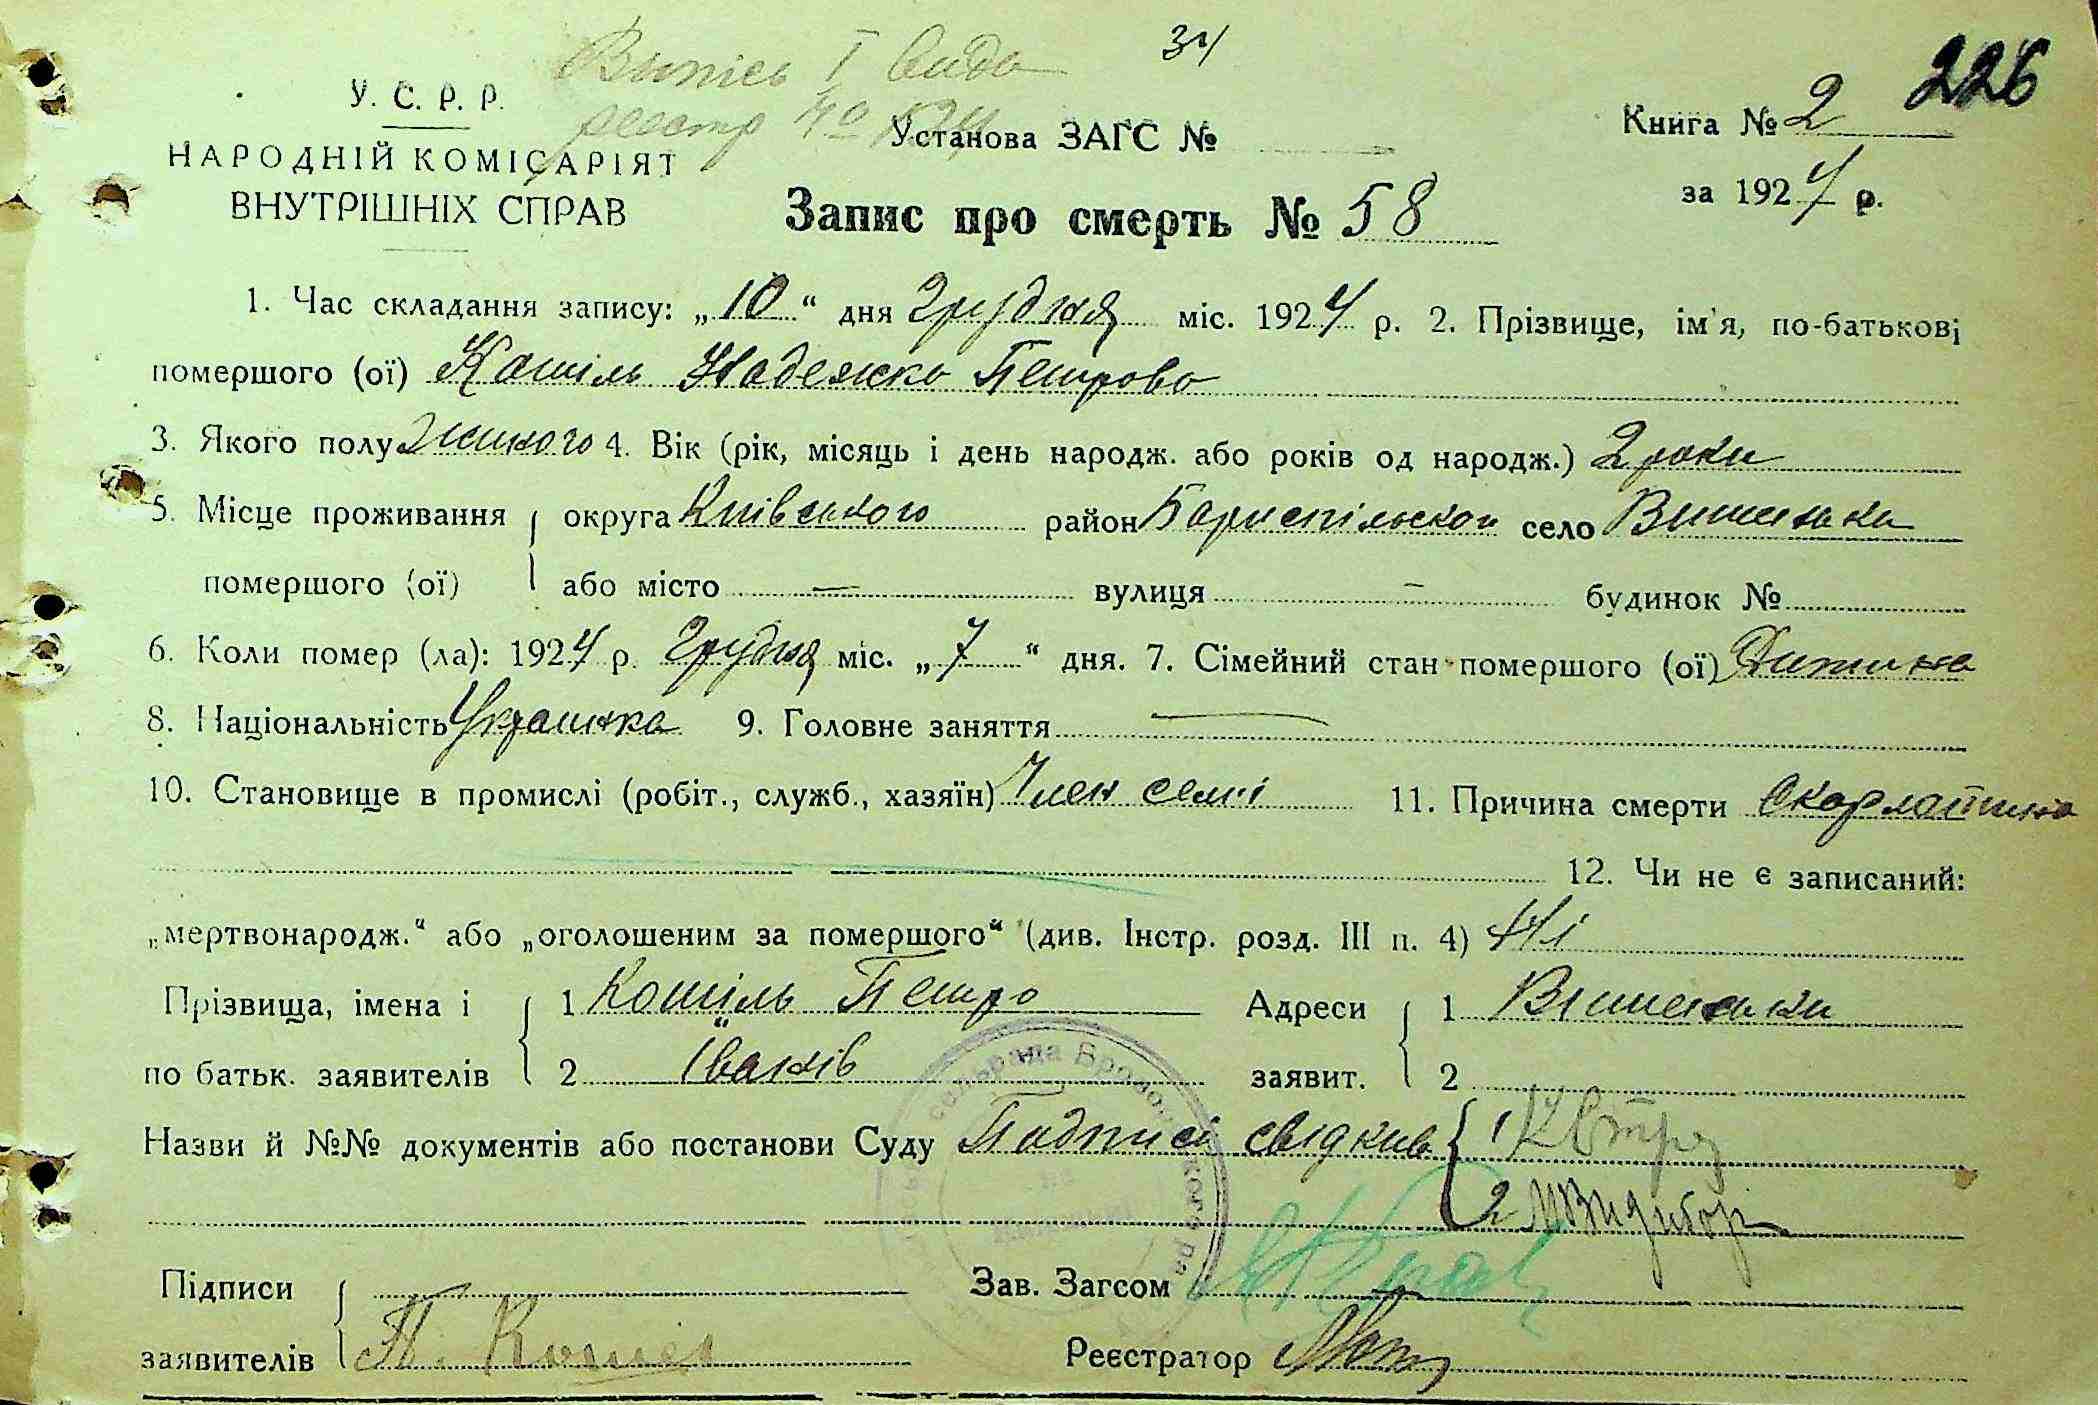 Выпись I вида 34 226
У. С. Р. Р.
реестр № Установа ЗАГС № Книга № 2
НАРОДНІЙ КОМІСАРІЯТ
ВНУТРІШНІХ СПРАВ
за 1924 р.
Запис про смерть № 58
1. Час складання запису: „10“ дня Грудня міс. 1924 р. 2. Прізвище, ім'я, по-батькові
помершого (ої) Кошіль Надежка Петрова
3. Якого полу жіного 4. Вік (рік, місяць і день народж. або років од народж.) 2 роки
5. Місце проживання округа Київського район Бориспільскої село Вишеньки
помершого (ої) або місто — вулиця — будинок №
6. Коли помер (ла): 1924 р. Грудня міс. „7“ дня. 7. Сімейний стан помершого (ої) Дитина
8. Національність Украинка 9. Головне заняття —
10. Становище в промислі (робіт., служб., хазяїн) Член семі 11. Причина смерти Скарлатина
12. Чи не є записаний:
„мертвонародж.“ або „оголошеним за помершого“ (див. Інстр. розд. III п. 4) Ні
Прізвища, імена і 1 Кошіль Петро Адреси 1 Вишеньки
по батьк. заявителів 2 Іванів заявит. 2
Назви й №№ документів або постанови Суду Подписі свідків 1
2 М Видибор
Підписи Зав. Загсом
заявителів П. Кошіл Реєстратор